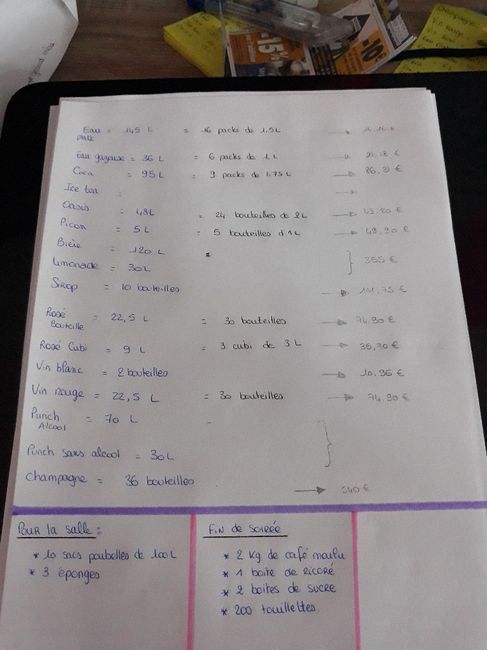 Eau plate = 145 L = 16 packs de 1.5L
Eau gazeuse = 36 L = 6 packs de 1 L
Coca = 95L = 9 packs de 1.75L → 86,31 €
Ice tea :
Oasis = 48L = 24 bouteilles de 2L → 43.80 €
Picon = 5 L = 5 bouteilles d'1L → 49,90 €
Bière = 120 L
Limonade = 30L } 355 €
Sirop = 10 bouteilles
Rosé Bouteille = 22,5 L = 30 bouteilles → 74.90 €
Rosé Cubi = 9 L = 3 cubi de 3 L
Vin blanc = 2 bouteilles → 10.96 €
Vin rouge = 22,5 L = 30 bouteilles → 74.90 €
Punch Alcool = 70 L
Punch sans alcool = 30L
Champagne = 36 bouteilles → 540 €
Pour la salle :
* 10 sacs poubelles de 100L
* 3 éponges
Fin de soirée
* 2 Kg de café moulu
* 1 boite de Ricoré
* 2 boites de sucre
* 200 touillettes.